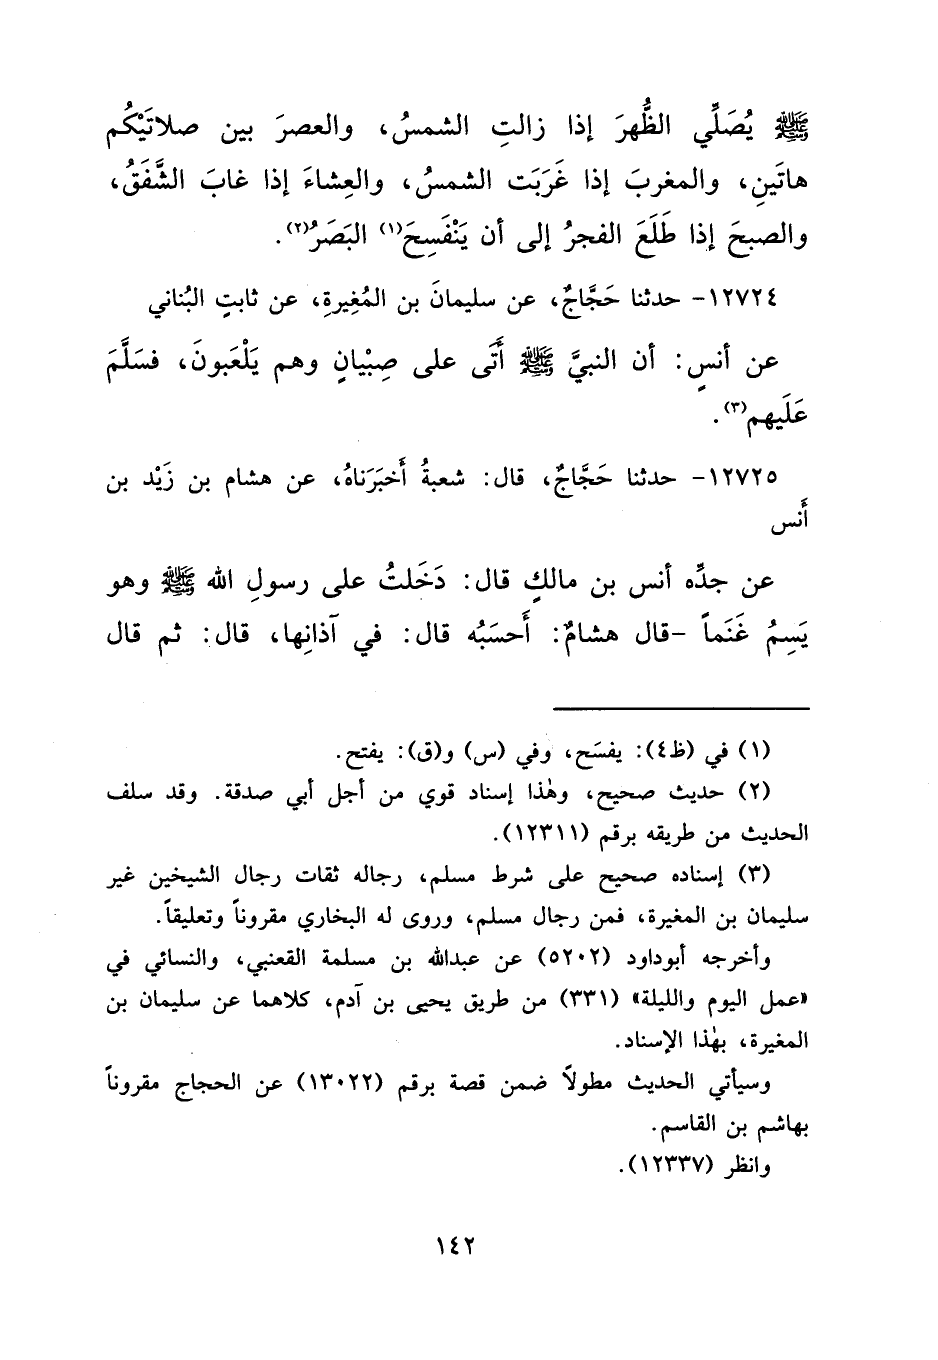 ﷺ يُصَلِّي الظُّهرَ إذا زالتِ الشمسُ، والعصرَ بين صلاتَيْكُم
هاتَينِ، والمغربَ إذا غَرَبَت الشمسُ، والعِشاءَ إذا غابَ الشَّفَقُ،
والصبحَ إذا طَلَعَ الفجرُ إلى أن يَنْفَسِحَ(١) البَصَرُ(٢).
١٢٧٢٤- حدثنا حَجَّاجٌ، عن سليمانَ بن المُغِيرةِ، عن ثابتٍ البُناني
عن أنسٍ: أن النبيَّ ﷺ أَتَى على صِبْيانٍ وهم يَلْعَبونَ، فسَلَّمَ
عَلَيهم(٣).
١٢٧٢٥- حدثنا حَجَّاجٌ، قال: شعبةُ أَخبَرَناهُ، عن هشام بن زَيْد بن
أَنس
عن جدِّه أنس بن مالكٍ قال: دَخَلتُ على رسولِ الله ﷺ وهو
يَسِمُ غَنَماً -قال هشامٌ: أَحسَبُه قال: في آذانِها، قال: ثم قال
(١) في (ظ٤): يفسَح، وفي (س) و(ق): يفتح.
(٢) حديث صحيح، وهٰذا إسناد قوي من أجل أبي صدقة. وقد سلف
الحديث من طريقه برقم (١٢٣١١).
(٣) إسناده صحيح على شرط مسلم، رجاله ثقات رجال الشيخين غير
سليمان بن المغيرة، فمن رجال مسلم، وروى له البخاري مقروناً وتعليقاً.
وأخرجه أبوداود (٥٢٠٢) عن عبدالله بن مسلمة القعنبي، والنسائي في
«عمل اليوم والليلة» (٣٣١) من طريق يحيى بن آدم، كلاهما عن سليمان بن
المغيرة، بهٰذا الإسناد.
وسيأتي الحديث مطولاً ضمن قصة برقم (١٣٠٢٢) عن الحجاج مقروناً
بهاشم بن القاسم.
وانظر (١٢٣٣٧).
١٤٢